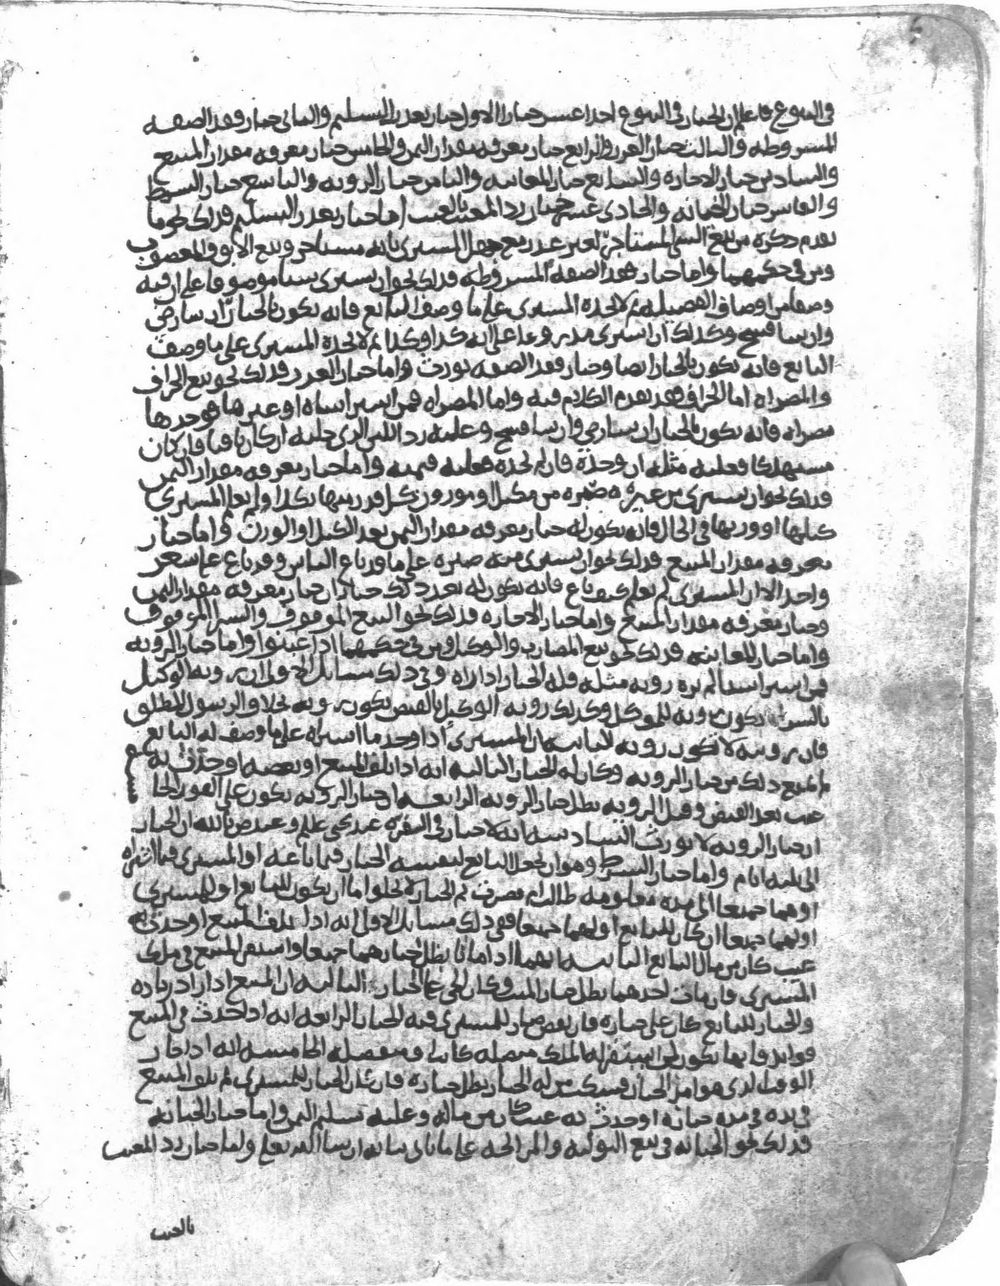 في البيوع فاعلم ان الخيار في البيوع احد عشر خيارا الاول خيار تعذر التسليم والثاني خيار فقد الصفه
المشروطه والثالث خيار الغرر والرابع خيار معرفه مقدار الثمن والخامس خيار معرفه مقدار المبيع
والسادس خيار الاجازه والسابع خيار المعاينه والثامن خيار الرويه والتاسع خيار الشرط
والعاشر خيار الخيانه والحادي عشر خيار رد المعيب بالعيب اما خيار تعذر التسليم فذلك نحو ما
تقدم ذكره من بيع الشي المستاجر لغير عذر مع جهل المشتري بانه مستاجر وبيع الابق والمغصوب
ومن في حكمهما واما خيار فقد الصفه المشروطه فذلك نحو ان يشتري شيئا موصوفا على ان فيه
وصفا من اوصاف الفضيله ثم لا يجده المشتري على ما وصف البايع فانه يكون بالخيار ان شا رضي
وان شا فسخ وكذلك ان اشترى مذروعا على انه كذا وكذا ثم لا يجده المشتري على ما وصف
البايع فانه يكون بالخيار ايضا وخيار فقد الصفه يورث واما خيار الغرر فذلك نحو بيع الجزاف
والمصراه اما الجزاف فقد تقدم الكلام فيه واما المصراه فمن اشترا شاه او غيرها فوجدها
مصراه فانه يكون بالخيار ان شا رضي وان شا فسخ وعليه رد اللبن الذي حلبه ان كان باقيا فان كان
مستهلكا فعليه مثله ان وجده فان لم يجده فعليه قيمته واما خيار معرفه مقدار الثمن
فذلك نحو ان يشتري من غيره صبره من مكيل او موزون كل قدر منها بكذا ولم يعلم المشتري
كيلها او وزنها في الحال فانه يكون له خيار معرفه مقدار الثمن بعد الكيل او الوزن واما خيار
معرفه مقدار المبيع فذلك نحو ان يشتري منه صبره على ما قد باع الناس وقد باع على سعر
واحد الا ان المشتري لم يعلم كيف باع فانه يكون له بعد ذلك خياران خيار معرفه مقدار الثمن
وخيار معرفه مقدار المبيع واما خيار الاجازه فذلك نحو البيع الموقوف والشرا الموقوف
واما خيار المعاينه فذلك نحو بيع المضارب والوكيل ومن في حكمهما اذا غبنوا واما خيار الرويه
فمن اشترا شيا لم يره رويه مثله فله الخيار اذا راه وفي ذلك مسايل الاولى ان رويه الوكيل
بالشرا تكون رويه للموكل وكذلك رويه الوكيل بالقبض تكون رويه بخلاف الرسول المطلق
فان رويته لا تكون رويه الثانيه ان المشتري اذا وجد ما اشتراه على ما وصف له البايع
لم يمنع ذلك من خيار الرويه وكان له الخيار الثالثه انه اذا تلف المبيع او بعضه او حدث به
عيب بعد القبض وقبل الرويه بطل خيار الرويه الرابعه ان خيار الرويه يكون على الفور الخا
ان خيار الرويه لا يورث السادسه انه لا خيار في الصرف عند يحيى عليلم وعند ص بالله ان الخيار
الى ثلثه ايام واما خيار الشرط وهو ان يجعل البايع لنفسه الخيار فيما باعه او المشتري فيما اشتراه
او هما جميعا الى مده معلومه طالت ام قصرت ثم الخيار لا يخلو اما ان يكون للبايع او للمشتري
او لهما جميعا ان كان للبايع او لهما جميعا ففي ذلك مسايل الاولى انه اذا تلف المبيع او حدث به
عيب كان من مال البايع الثانيه انهما اذا ماتا بطل خيارهما جميعا واستقر المبيع في ملك
المشتري فان مات احدهما بطل خيار الميت وكان الحي على الخيار الثالثه ان المبيع اذا زاد زياده
والخيار للبايع كان على خياره فان نقص صار للمشتري فيه الخيار الرابعه انه اذا حدث في المبيع
فوايد فانها تكون لمن استقر له الملك متصله كانت او منفصله الخامسه انه اذا جاز
الوقت الذي هو امد الخيار فسكت من له الخيار بطل خياره فان كان الخيار للمشتري ثم تلف المبيع
في يده في مده خياره او حدث به عيب كان من ماله وعليه تسليم الثمن واما خيار الخيانه
فذلك نحو الخيانه في بيع التوليه والمرابحه على ما ياتي بيانه ان شا الله تعلى واما خيار رد المعيب
بالعيب